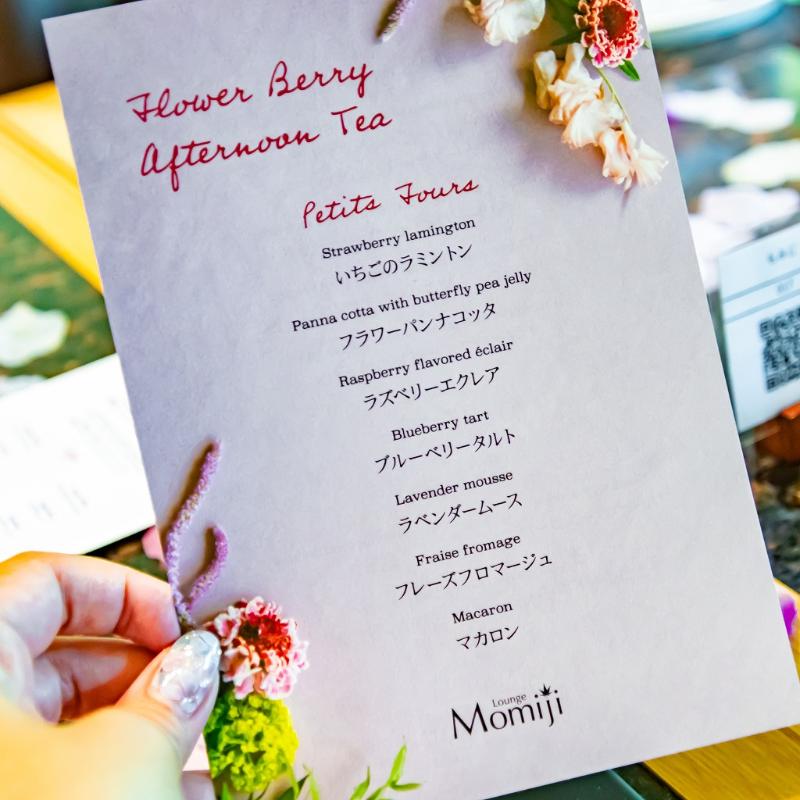 Flower Berry
Afternoon Tea
Petits Fours
Strawberry lamington
いちごのラミントン
Panna cotta with butterfly pea jelly
フラワーパンナコッタ
Raspberry flavored éclair
ラズベリーエクレア
Blueberry tart
ブルーベリータルト
Lavender mousse
ラベンダームース
Fraise fromage
フレーズフロマージュ
Macaron
マカロン
Lounge
Momiji